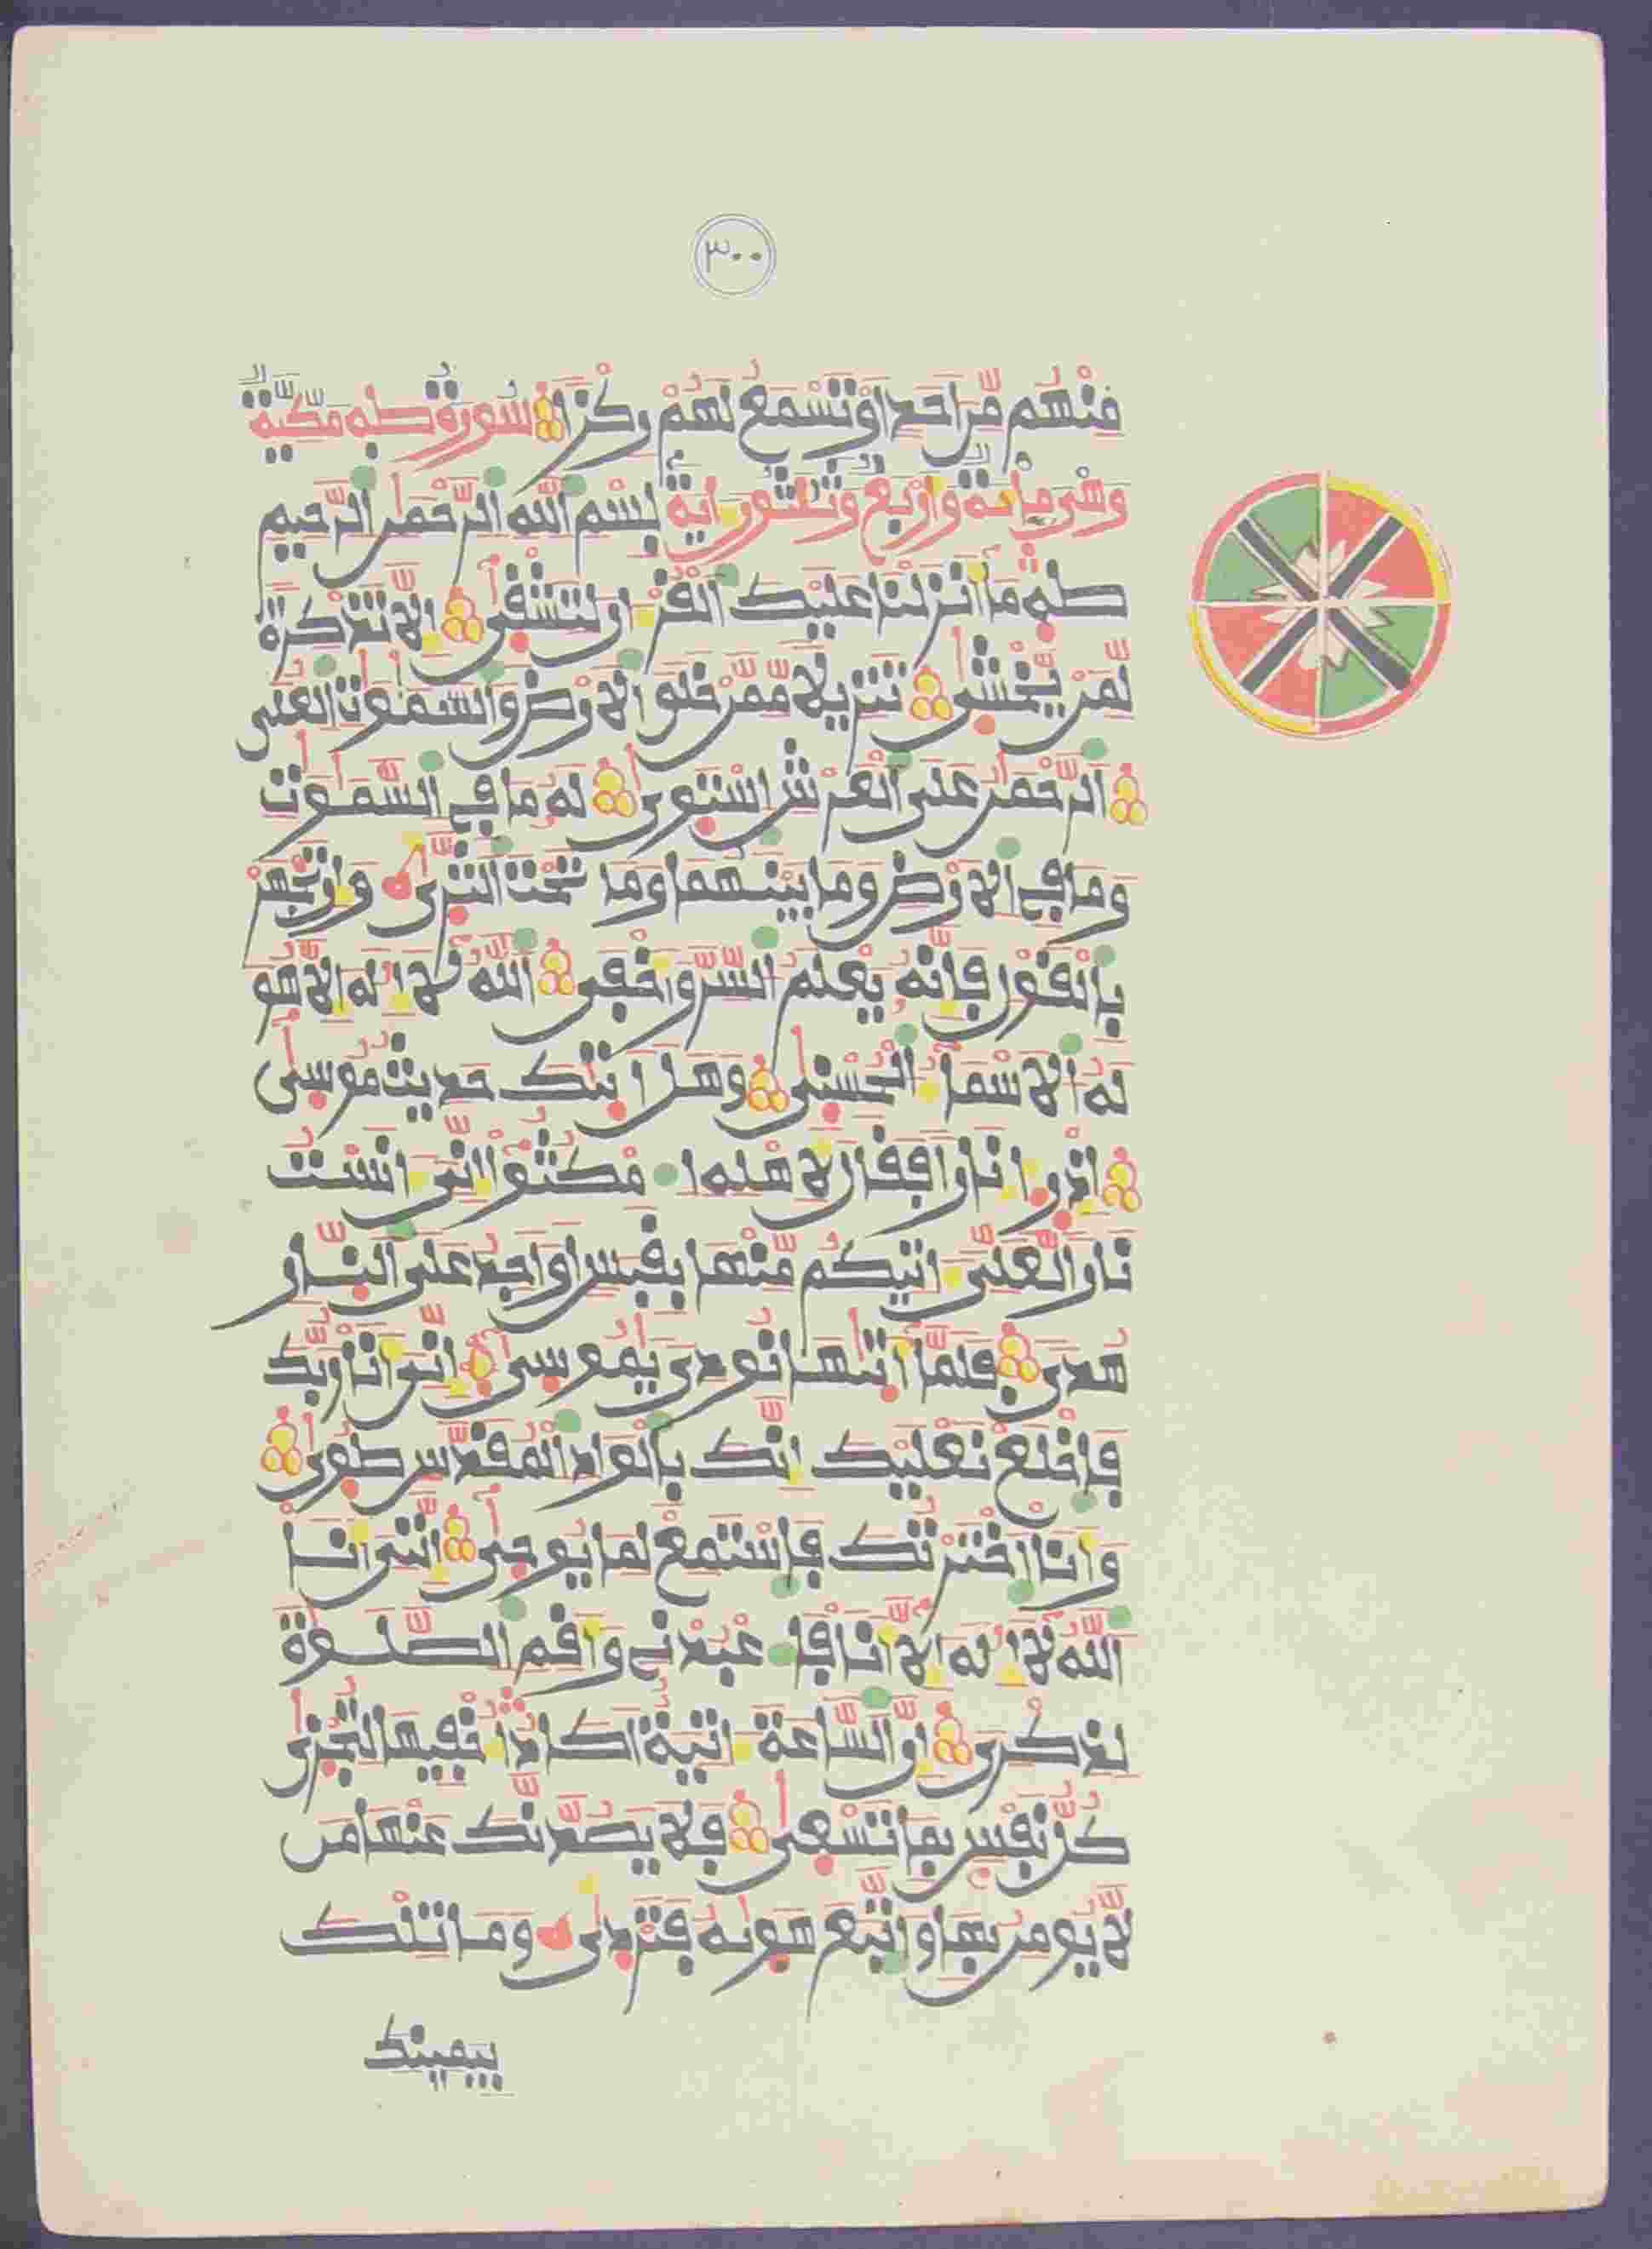 ٣٠٠
مِنْهُم مِّنَ احَدٍ اَوْ تَسْمَعُ لَهُمْ رِكْزا سُورَةُ طه مَكِّيَّةٌ
وَهْيَ مِائَةٌ وَأَرْبَعٌ وَثَلَثُونَ ايَةً بِسْمِ اللَّهِ الرَّحْمٰنِ الرَّحِيمِ
طه مَا أَنزَلْنَا عَلَيْكَ الْقُرْءَانَ لِتَشْقىٰ إِلَّا تَذْكِرَةً
لِّمَنْ يَّخْشىٰ تَنزِيلًا مِّمَّنْ خَلَقَ الَارْضَ وَالسَّمٰوٰتِ الْعُلَى
الرَّحْمٰنُ عَلَى الْعَرْشِ اسْتَوىٰ لَهُ مَا فِي السَّمٰوٰتِ
وَمَا فِي الَارْضِ وَمَا بَيْنَهُمَا وَمَا تَحْتَ الثَّرىٰ وَإِن تَجْهَرْ
بِالْقَوْلِ فَإِنَّهُ يَعْلَمُ السِّرَّ وَأَخْفَى اللَّهُ لَا إِلٰهَ إِلَّا هُوَ
لَهُ الَاسْمَاءُ الْحُسْنىٰ وَهَلَ اتٰيكَ حَدِيثُ مُوسىٰ
إِذْ رَءا نَارا فَقَالَ لِأَهْلِهِ امْكُثُوا إِنِّيَ ءَانَسْتُ
نَارا لَّعَلِّيَ ءَاتِيكُم مِّنْهَا بِقَبَسٍ اَوَ اجِدُ عَلَى النَّارِ
هُدى فَلَمَّا أَتٰيهَا نُودِيَ يٰمُوسىٰ إِنِّيَ أَنَا رَبُّكَ
فَاخْلَعْ نَعْلَيْكَ إِنَّكَ بِالْوَادِ الْمُقَدَّسِ طُوىٰ
وَأَنَا اخْتَرْتُكَ فَاسْتَمِعْ لِمَا يُوحىٰ إِنَّنِيَ أَنَا
اللَّهُ لَا إِلٰهَ إِلَّا أَنَا فَاعْبُدْنِي وَأَقِمِ الصَّلَوٰةَ
لِذِكْرِيَ إِنَّ السَّاعَةَ ءَاتِيَةٌ اَكَادُ أُخْفِيهَا لِتُجْزىٰ
كُلُّ نَفْسٍ بِمَا تَسْعىٰ فَلَا يَصُدَّنَّكَ عَنْهَا مَن
لَّا يُومِنُ بِهَا وَاتَّبَعَ هَوٰيهُ فَتَرْدىٰ وَمَا تِلْكَ
بِيَمِينِكَ